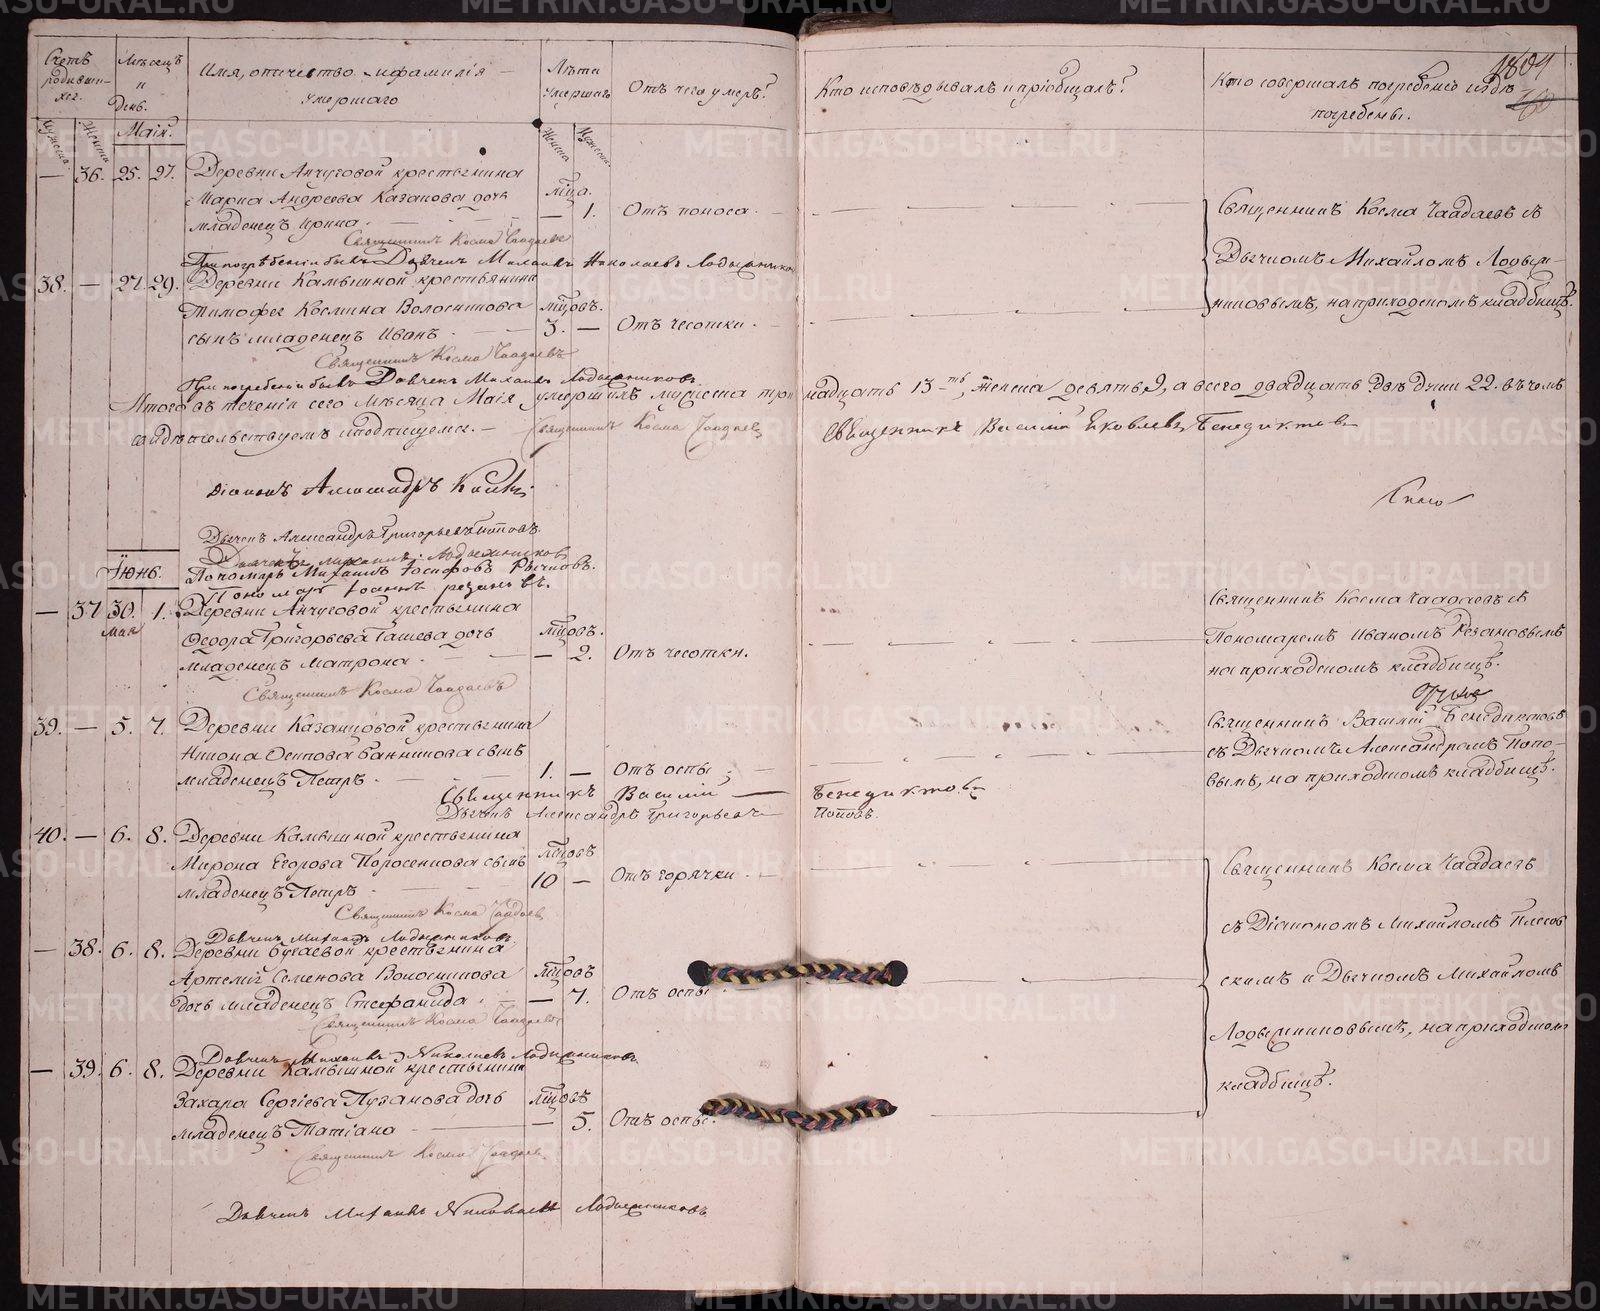 Счетъ родивши-хся.
Мѣсяцъ и День.
Имя, отчество и фамилія умершаго
Лѣта умершаго
Отъ чего умеръ?
Кто исповѣдывалъ и пріобщалъ?
Кто совершалъ погребеніе и гдѣ погребены.
Маія.
— 36. 25. 27. Деревни Анчуговой крестьянина
Марка Андреева Казакова дочь мца.
младенецъ Ирина. — 1. Отъ поноса.
Священникъ Косма Чаадаевъ
При погребеніи былъ Дьячекъ Михаилъ Николаевъ Лодыжниковъ
Священникъ Косма Чаадаевъ съ
Дьячкомъ Михайломъ Лодыж-
никовымъ, на приходскомъ кладбищѣ.
38. — 27. 29. Деревни Камышной крестьянина
Тимофея Космина Волосникова мцовъ.
сынъ младенецъ Иванъ. 3. — Отъ чесотки.
Священникъ Косма Чаадаевъ
При погребеніи былъ Дьячекъ Михаилъ Лодыжниковъ
Итого въ теченіи сего мѣсяца Маія умершихъ мужеска три надцать 13-ть, женска девять 9, а всего двадцать двѣ души 22. въ чемъ
свидѣтельствуемъ и подпишемся. — Священникъ Косма Чаадаевъ Священникъ Василій Яковлевъ Бенедиктовъ
Діаконъ Александръ
Дьячекъ Александръ Григорьевъ Поповъ.
Дьячекъ Михаилъ Лодыжниковъ
Пономарь Михаилъ Іосифовъ
Пономарь Іоаннъ Резановъ.
Іюнь.
— 37 30. 1. Деревни Анчуговой крестьянина
мая Федора Григорьева Ташева дочь мцовъ.
младенецъ Матрона. — 2. Отъ чесотки.
Священникъ Косма Чаадаевъ
Священникъ Косма Чаадаевъ съ
Пономаремъ Иваномъ Резановымъ
на приходскомъ кладбищѣ.
39. — 5. 7. Деревни Казанцовой крестьянина
Никона Осипова Банникова сынъ
младенецъ Петръ. 1. — Отъ оспы;
Священникъ Василій Бенедиктовъ
Дьячекъ Александръ Григорьевъ Поповъ.
Священникъ Василій Бенедиктовъ
съ Дьячкомъ Александромъ Попо-
вымъ, на приходскомъ кладбищѣ.
40. — 6. 8. Деревни Камышной крестьянина
Мирона Егорова Поросенкова сынъ мцовъ
младенецъ Петръ 10 — Отъ горячки.
Священникъ Косма Чаадаевъ
Дьячекъ Михаилъ Лодыжниковъ
— 38. 6. 8. Деревни Бугаевой крестьянина
Артемія Семенова Волосникова мцовъ
дочь младенецъ Стефанида. — 7. Отъ оспы
Священникъ Косма Чаадаевъ
Дьячекъ Михаилъ Николаевъ Лодыжниковъ
— 39. 6. 8. Деревни Камышной крестьянина
Захара Сергіева Пузанова дочь мцовъ
младенецъ Татіана — 5. Отъ оспы.
Священникъ Косма Чаадаевъ
Дьячекъ Михаилъ Николаевъ Лодыжниковъ
Священникъ Косма Чаадаевъ
съ Діакономъ Михайломъ Плесов
скимъ и Дьячкомъ Михайломъ
Лодыжниковымъ, на приходскомъ
кладбищѣ.
METRIKI.GASO-URAL.RU